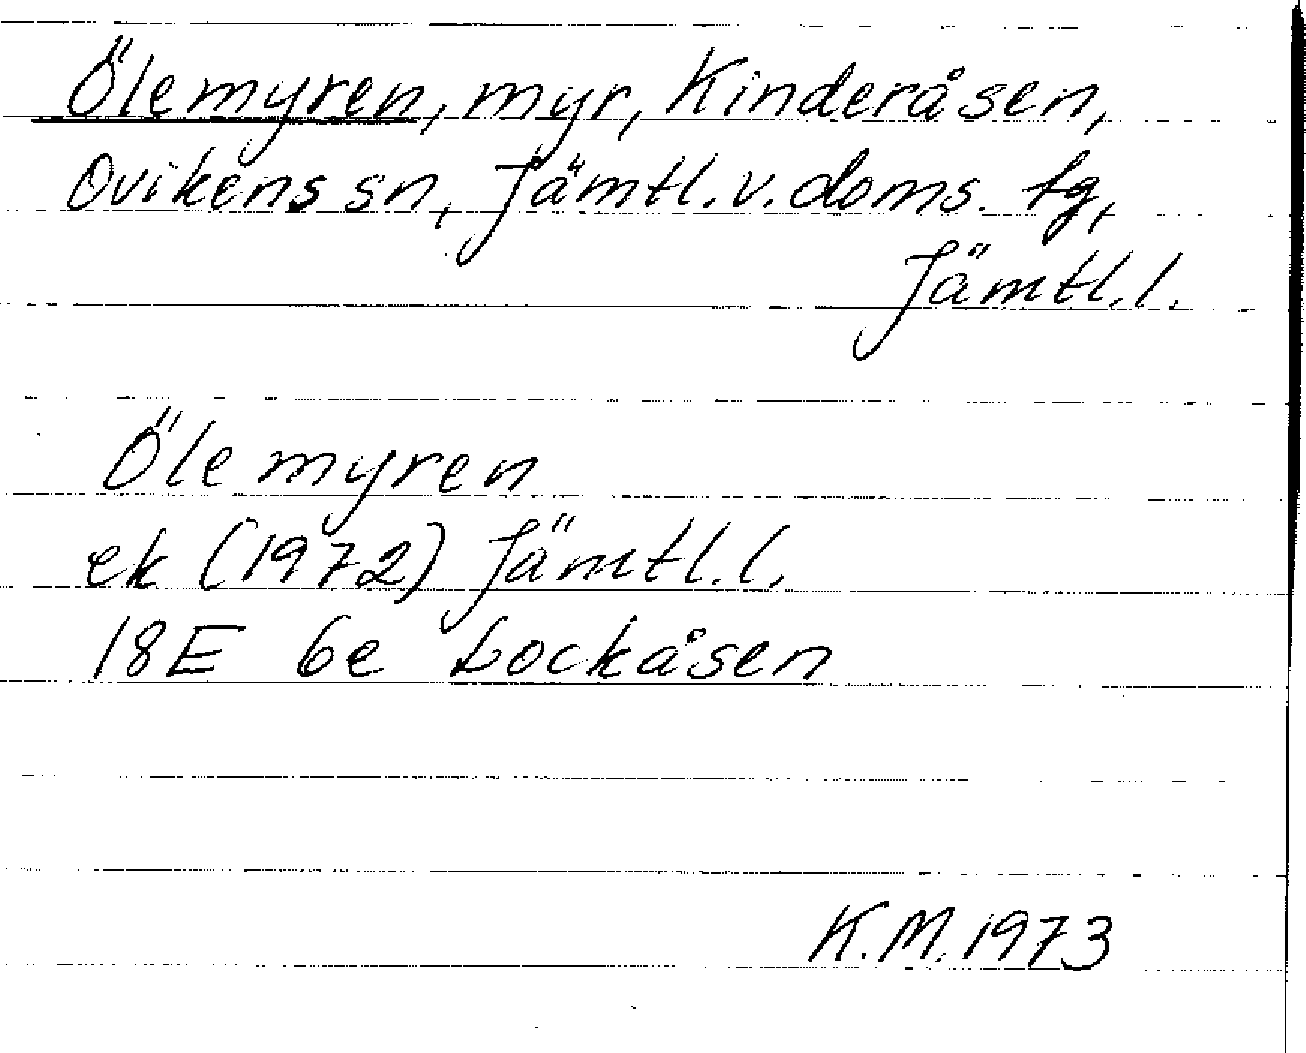 Ölemyren, myr, Kinderåsen,
Ovikens sn, Jämtl.v.doms. tg,
Jämtl.l.
Ölemyren
ek (1972) Jämtl.l.
18E 6e Lockåsen
K.M. 1973